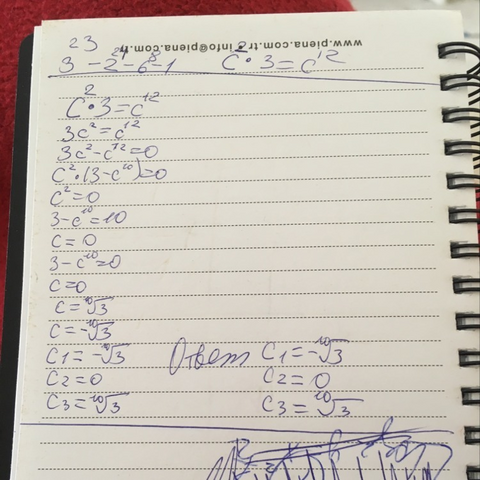 www.piena.com.tr info@piena.com.tr
23
3 - 2²⁴ - 6⁸ - 1   c²·3 = c¹²
c²·3 = c¹²
3c² = c¹²
3c² - c¹² = 0
c²·(3 - c¹⁰) = 0
c² = 0
3 - c¹⁰ = 10
c = 0
3 - c¹⁰ = 0
c = 0
c = ¹⁰√3
c = -¹⁰√3
c1 = -¹⁰√3   Ответ c1 = -¹⁰√3
c2 = 0   c2 = 0
c3 = ¹⁰√3   c3 = ¹⁰√3